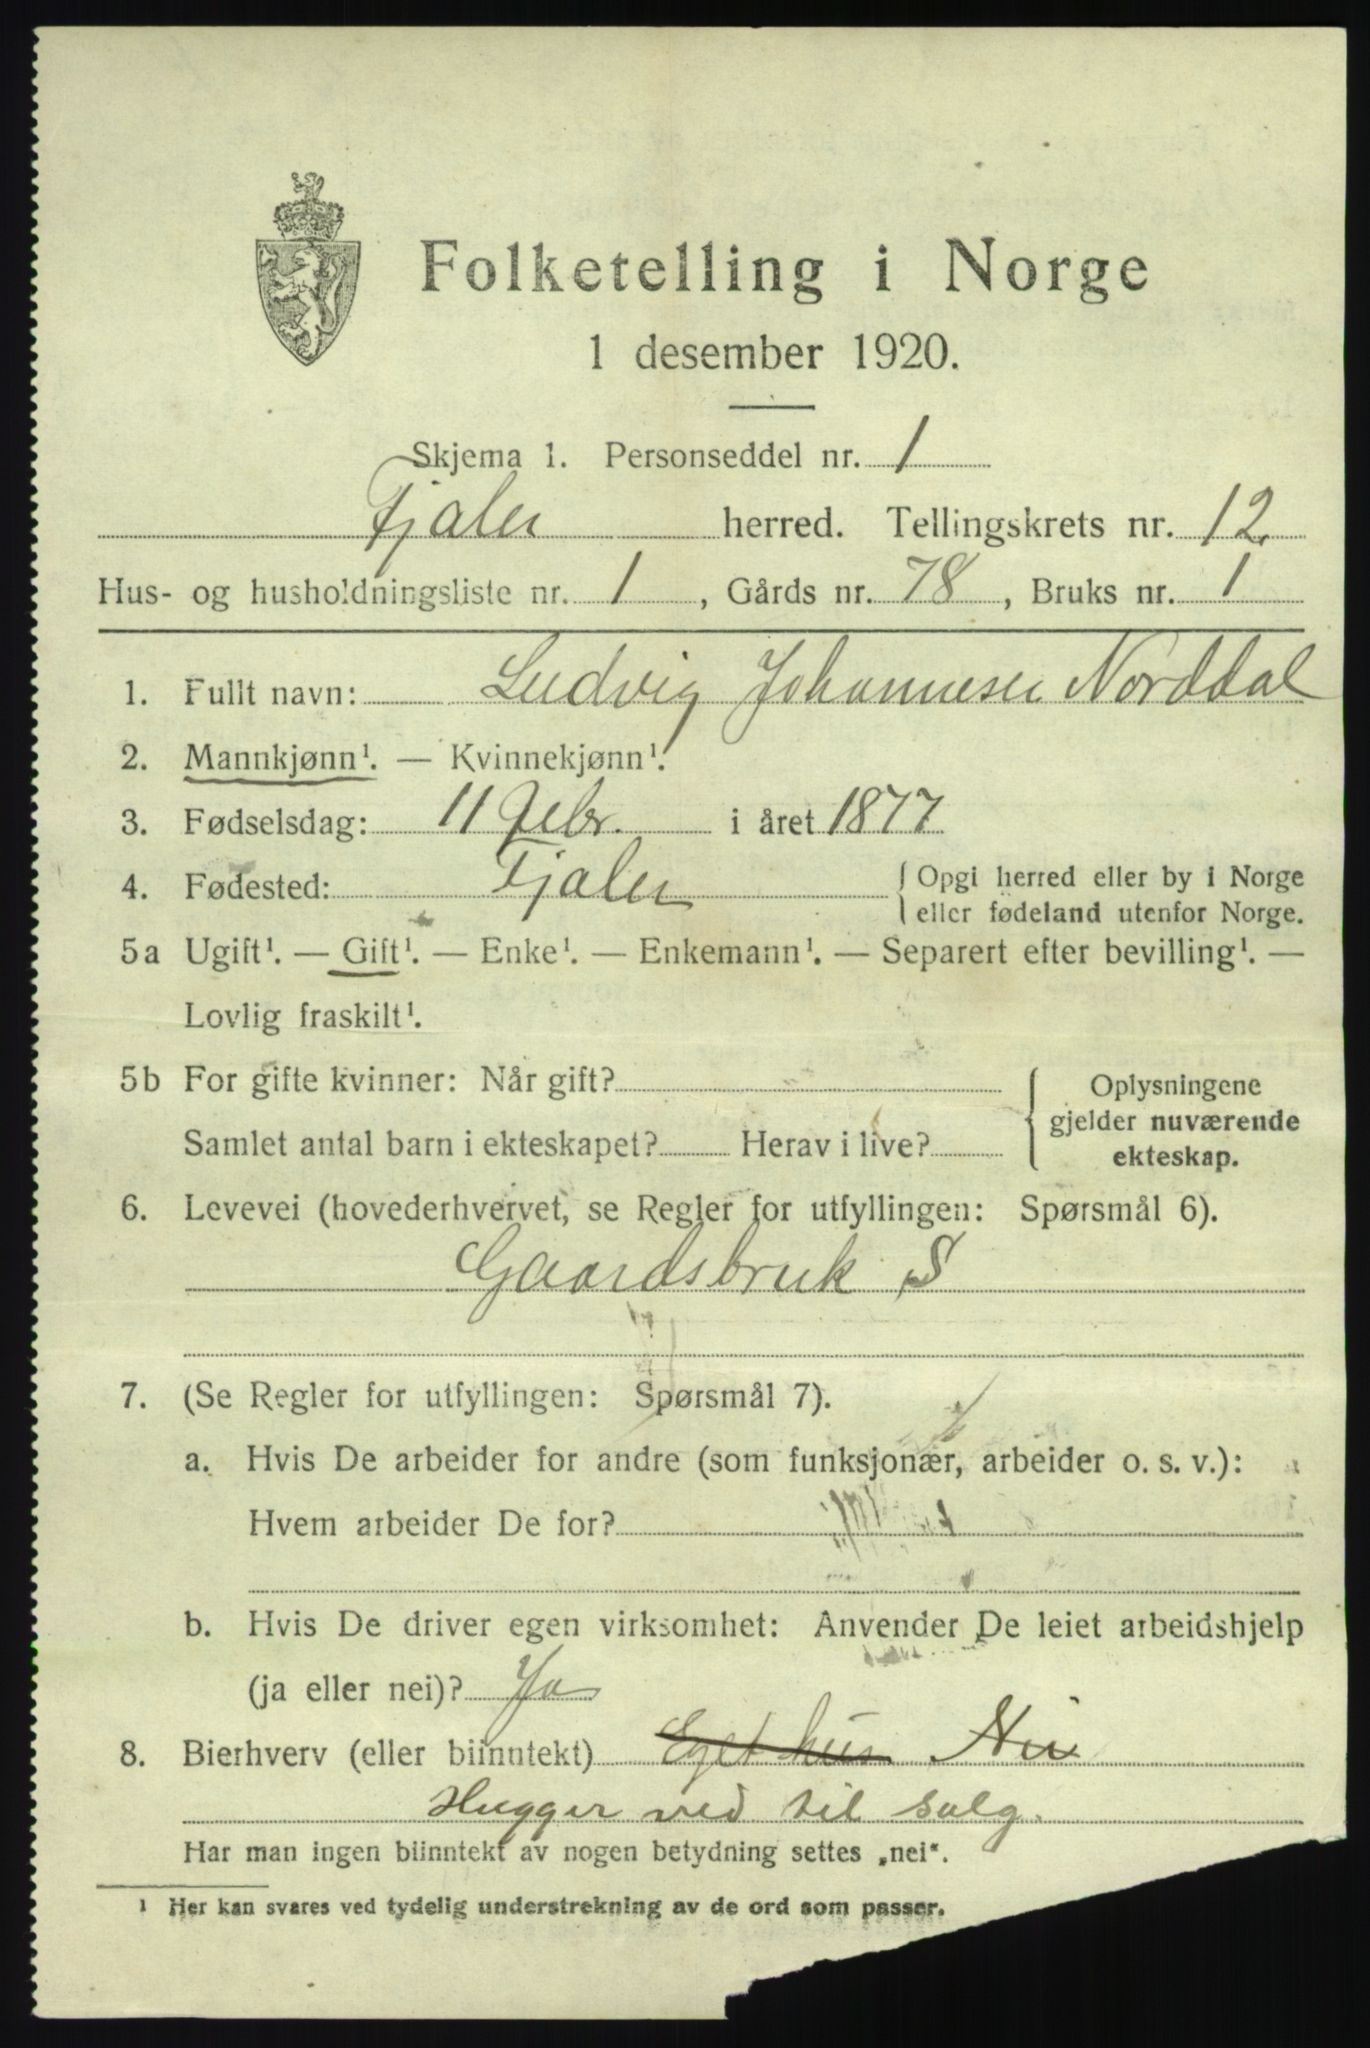 Folketelling i Norge
1 desember 1920.
Skjema 1. Personseddel nr. 1
Fjaler herred. Tellingskrets nr. 12.
Hus- og husholdningsliste nr. 1, Gårds nr. 78, Bruks nr. 1
1. Fullt navn: Ludvig Johannesen Norddal
2. Mannkjønn¹. — Kvinnekjønn¹.
3. Fødselsdag: 11 Febr. i året 1877
4. Fødested: Fjaler { Opgi herred eller by i Norge
eller fødeland utenfor Norge.
5a Ugift¹. — Gift¹. — Enke¹. — Enkemann¹. — Separert efter bevilling¹. —
Lovlig fraskilt¹.
5b For gifte kvinner: Når gift?
Samlet antal barn i ekteskapet? Herav i live?
{ Oplysningene
gjelder nuværende
ekteskap.
6. Levevei (hovederhvervet, se Regler for utfyllingen: Spørsmål 6).
Gaardsbruk S
7. (Se Regler for utfyllingen: Spørsmål 7).
a. Hvis De arbeider for andre (som funksjonær, arbeider o. s. v.):
Hvem arbeider De for?
b. Hvis De driver egen virksomhet: Anvender De leiet arbeidshjelp
(ja eller nei)? Ja
8. Bierhverv (eller biinntekt) Eget hus Nei
Hugger ved til salg.
Har man ingen biinntekt av nogen betydning settes „nei“.
¹ Her kan svares ved tydelig understrekning av de ord som passer.